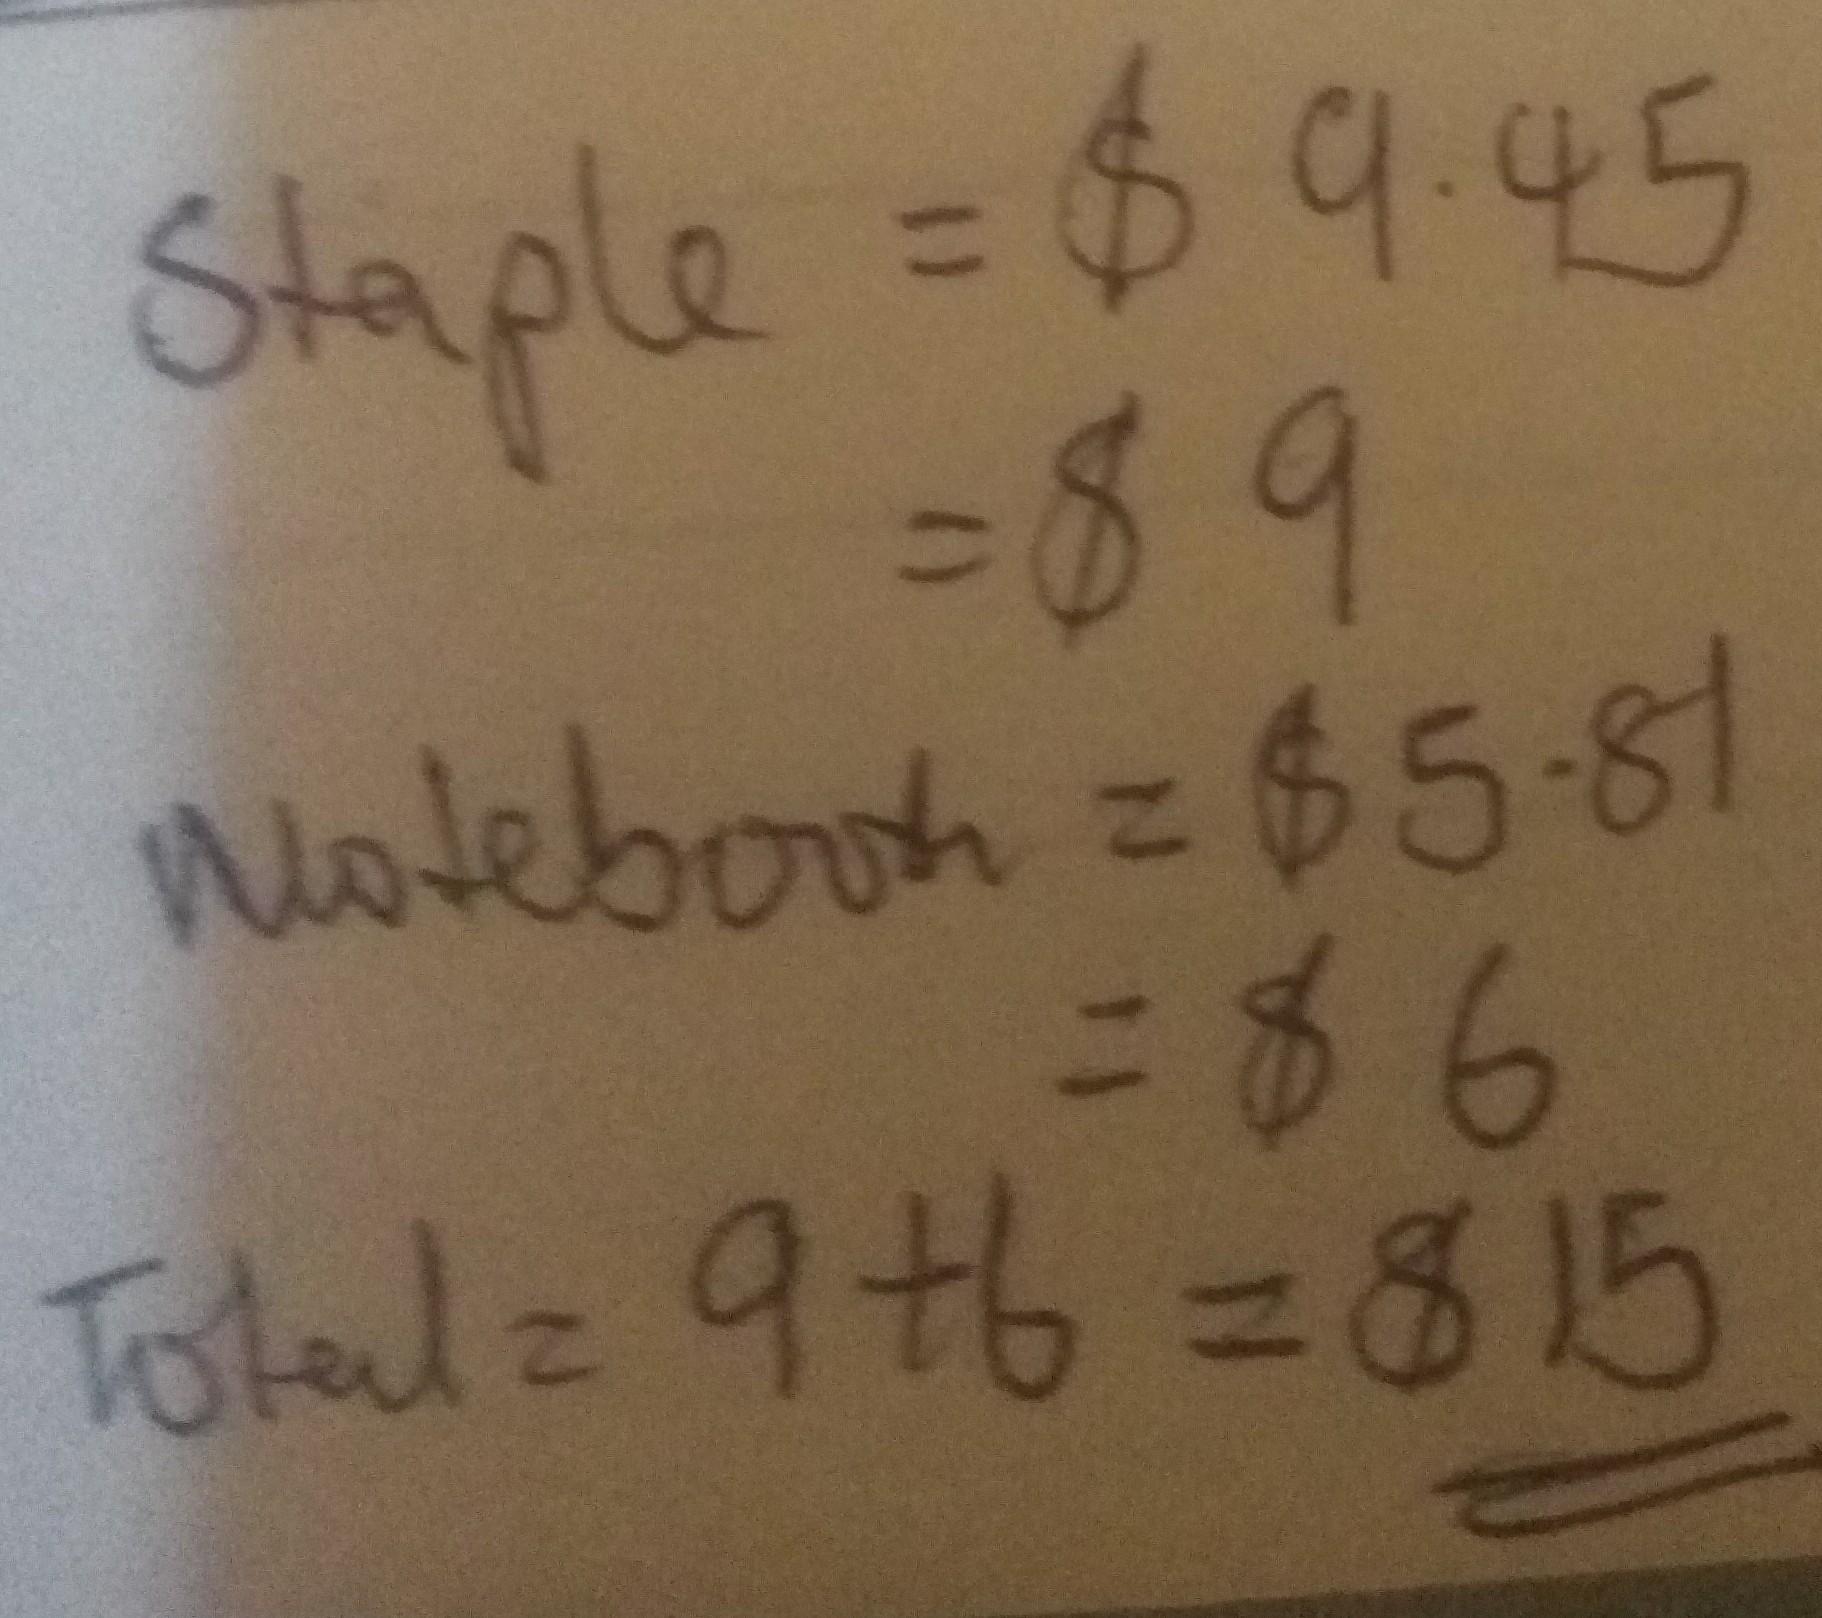 Staple = $ 9.45
= $ 9
Notebook = $5.81
= $ 6
Total = 9+6 = $15